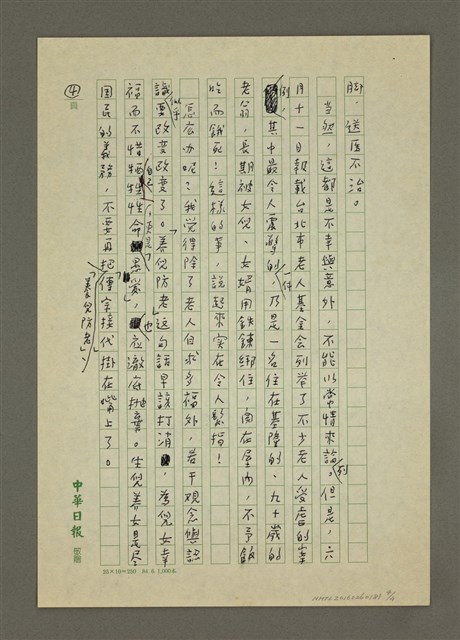 腳，送医不治。
当然，這都是不幸與意外，不能以常情來論列。但是，六
月十一日報載台北市老人基金会列举了不少老人受虐的案
例，其中最令人震驚的一件，乃是一名住在基隆的、九十歲的
老翁，長期被女兒、女婿用鉄鍊綁住，関在屋內，不予飯
吃而餓死！這樣的事，說起來实在令人髮指！
怎么办呢？我觉得除了老人自求多福外，若干观念與認
識似乎要改变改变了。「養兒防老」这句話早該打消，為兒女幸
福而不惜犧牲自己性命，也应澈底抛棄。生兒養女是尽
国民的義務，不要再把「養兒防老」、「傳宗接代」掛在嘴上了。
④
頁
中華日報
稿牋
25×10=250